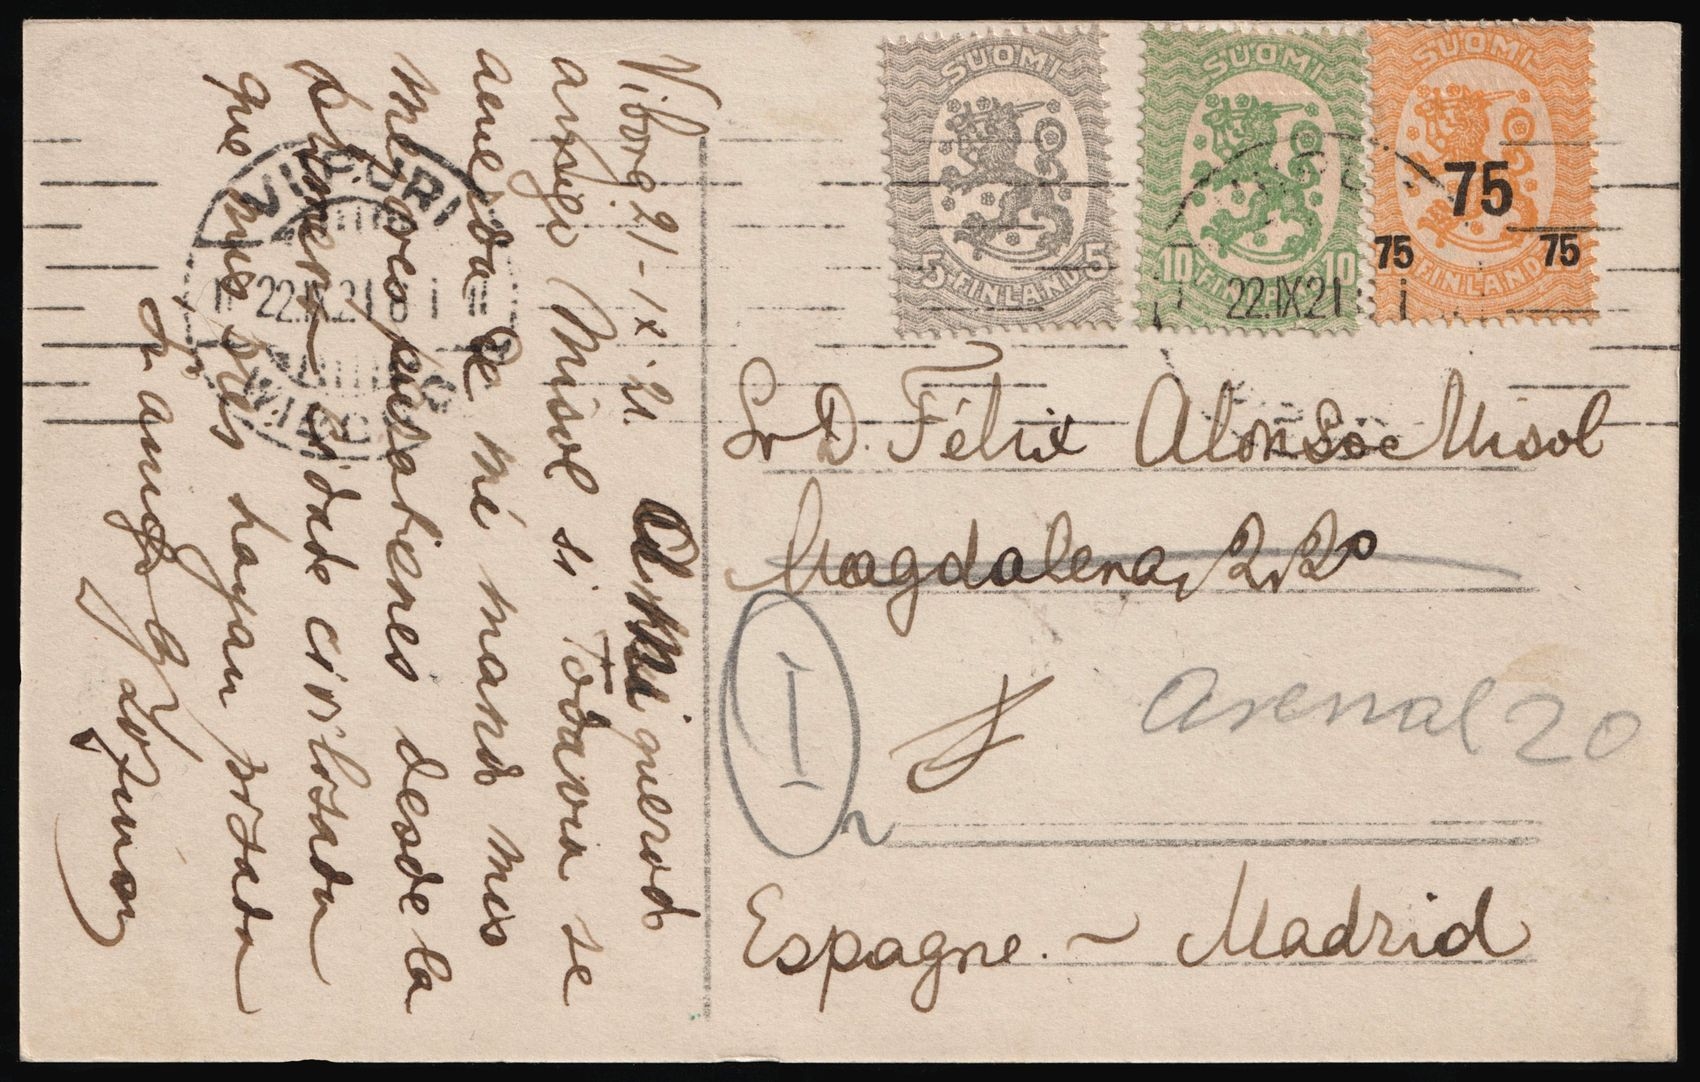 Viborg 21-IX-21.
A mi querido
amigo Misol si Todavia se
acuerda de mi mando mis
desde la
ciudad civilizada
que mis pies hayan pisado
Su amigo
SUOMI
5 5
FINLAND
SUOMI
10 10
FINLAND
SUOMI
75
75 75
FINLAND
VIIPURI
22.IX.21
22.IX.21
Sr D. Félix Alonso Misol
Magdalena, 2, 2º
I
Arenal 20
Espagne. ~ Madrid